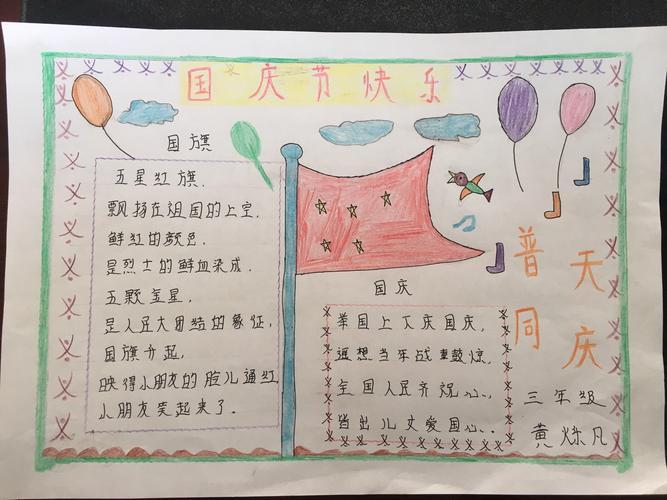 国庆节快乐
国旗
五星红旗.
飘扬在祖国的上空.
鲜红的颜色.
是烈士的鲜血染成.
五颗金星.
是人民大团结的象征,
国旗升起,
映得小朋友的脸儿通红
小朋友笑起来了.
国庆
举国上下庆国庆.
遥想当年战鼓惊.
全国人民齐祝心.
当出儿女爱国心.
普天
同庆
三年级
黄烁凡